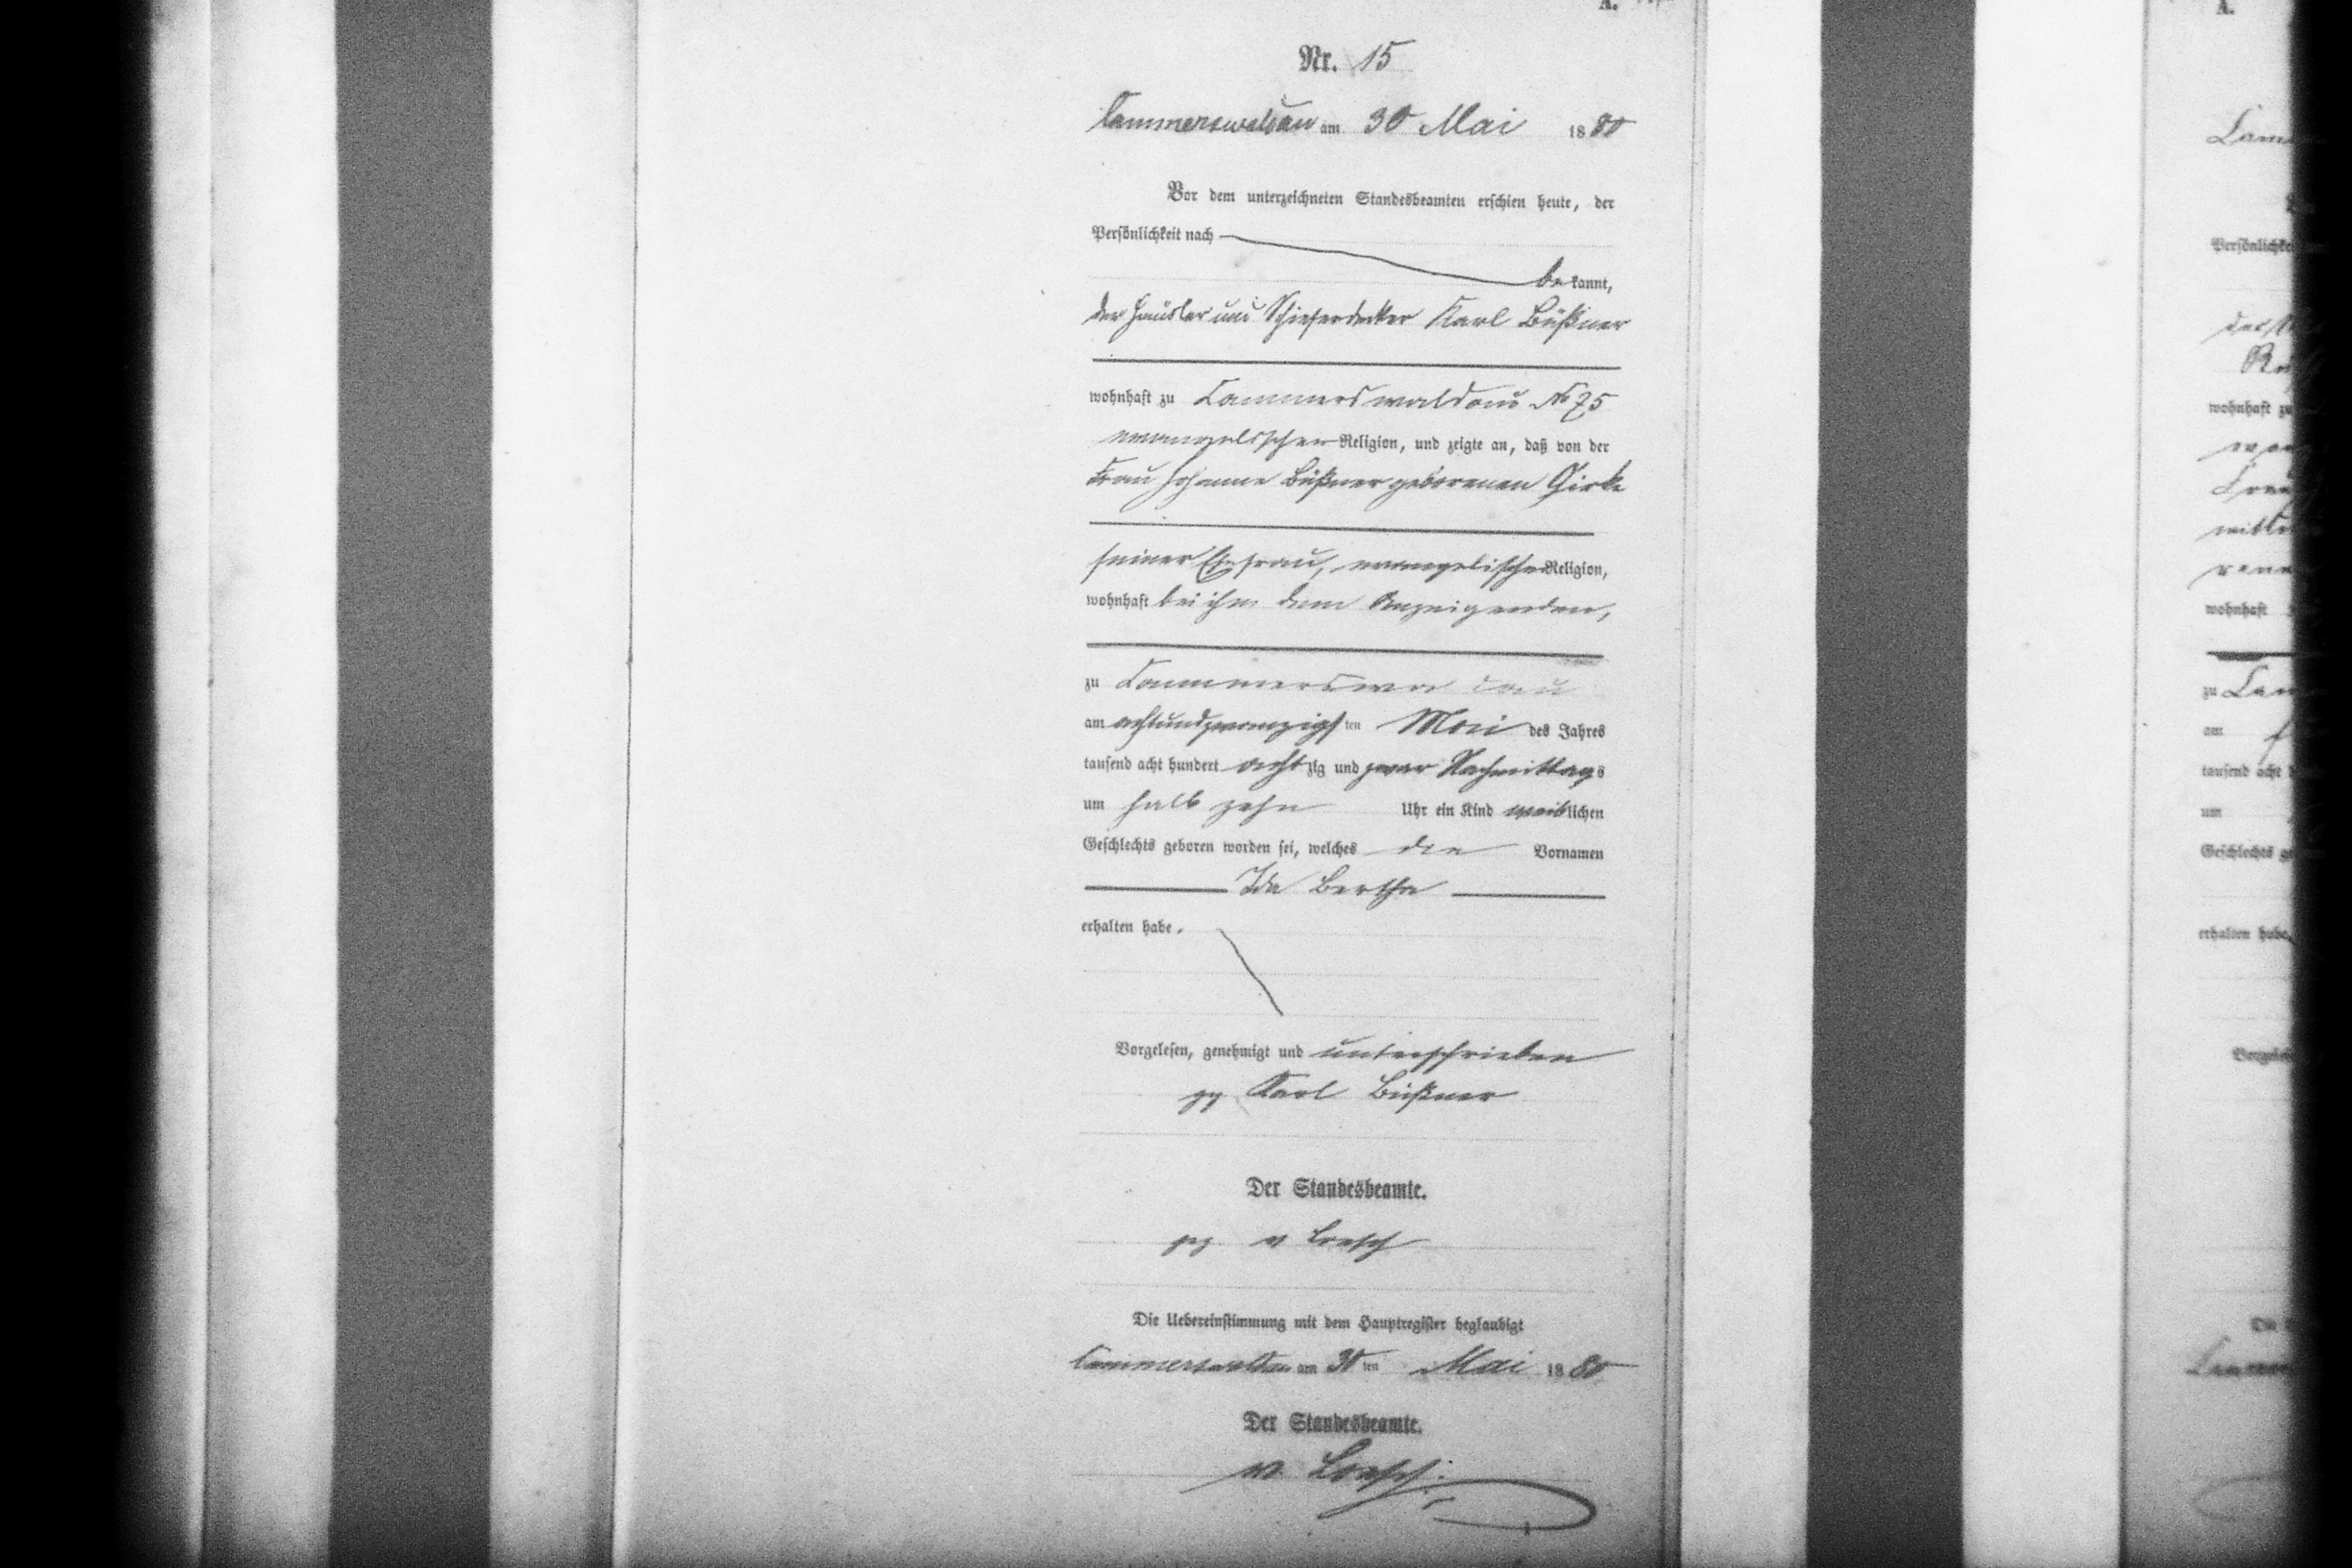 A.
Nr. 15
Cammerswaldau am 30 Mai 1880
Vor dem unterzeichneten Standesbeamten erschien heute, der
Persönlichkeit nach
bekannt,
der Häusler und Schieferdecker Karl Büßner
wohnhaft zu Cammerswaldau No 75
evangelischer Religion, und zeigte an, daß von der
Frau Johanne Büßner geborenen Girke
seiner Ehefrau, evangelischer Religion,
wohnhaft bei ihm dem Anzeigenden,
zu Cammerswa dau
am achtundzwanzigsten Mai des Jahres
tausend acht hundert achtzig und zwar Nachmittags
um halb zehn Uhr ein Kind weiblichen
Geschlechts geboren worden sei, welches die Vornamen
Ida Bertha
erhalten habe.
Vorgelesen, genehmigt und unterschrieben
gez Karl Büßner
Der Standesbeamte.
gez v Loesch
Die Uebereinstimmung mit dem Hauptregister beglaubigt
Cammerswaldau am 30ten Mai 1880
Der Standesbeamte.
v. Loesch.
A.
wohnhaft zu
wohnhaft
zu
am
um
erhalten habe,